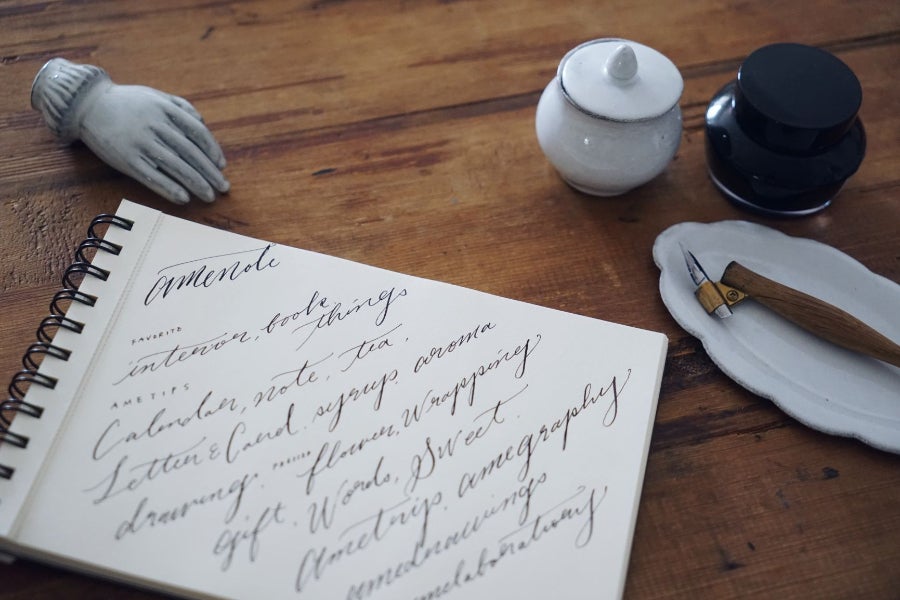 amenote
FAVORITE
interior, book
things
AMETIPS
Calendar, note, tea,
Letter & Card. syrup. aroma
drawing. flower, Wrapping,
gift. Words, Sweet.
Ametrip. amegraphy
amedrawings